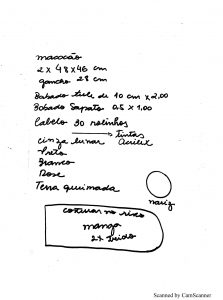 macacão
2 x 48x46 cm
gancho 28 cm
Babado tule de 10 cm x 2,00
Bobado Sapato 0.5 x 1,00
Cabelo 30 rolinhos
tintas
cinza lunar Acrilex
Preto
Branco
Rose
Terra queimada
nariz
costurar no risco
manga
2x tecido
Scanned by CamScanner